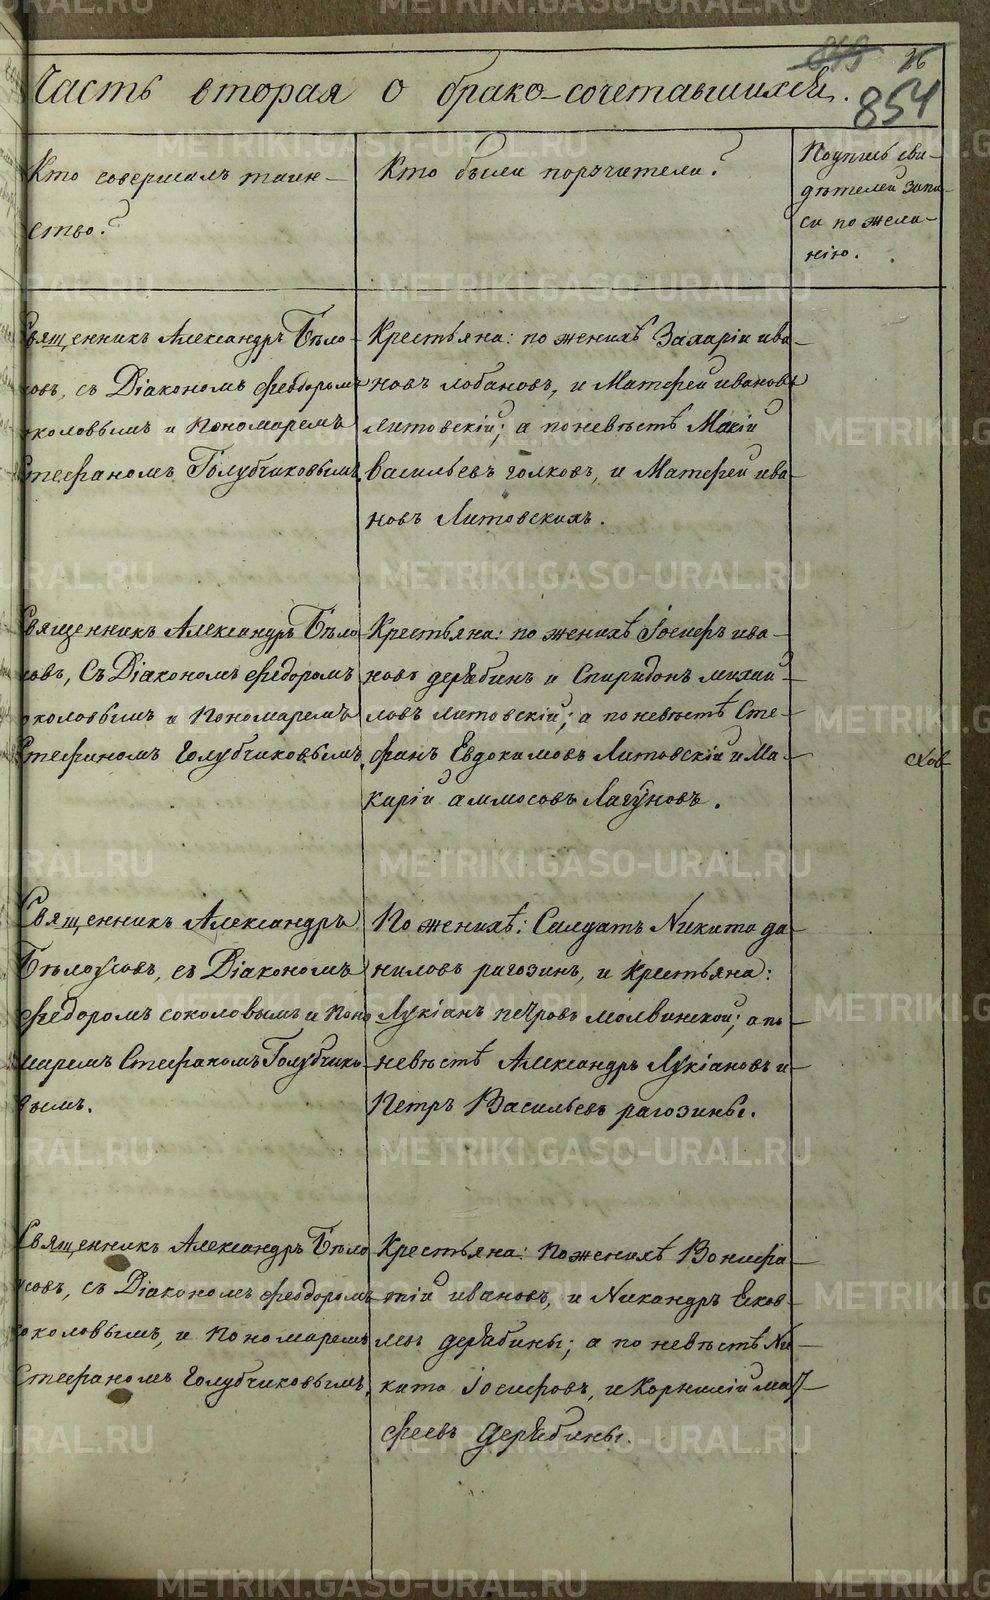 26
854
Часть вторая о брако-сочетавшихся.
Кто совершалъ таин-
ство?
Кто были поручители?
Подпись сви-
дѣтелей запи-
си по жела-
нію.
Священникъ Александръ Бѣло-
усовъ, съ Діакономъ Феодоромъ
Соколовымъ и Пономаремъ
Стефаномъ Голубчиковымъ.
Крестьяна: по женихѣ Захарій ива-
новъ лобановъ, и Матфей ивановъ
литовскій; а по невѣстѣ
Васильевъ голковъ, и Матфей ива-
новъ Литовскихъ.
Священникъ Александръ Бѣло
усовъ, Съ Діакономъ Федоромъ
Соколовымъ и Пономаремъ
Стефаномъ Голубчиковымъ.
Крестьяна: по женихѣ Іосифъ ива-
новъ дерябинъ и Спиридонъ михай-
ловъ литовскій; а по невѣстѣ Сте-
фанъ Евдокимовъ Литовскій и Ма-
карій аммосовъ Лагуновъ.
Священникъ Александръ
Бѣлоусовъ, съ Діакономъ
Федоромъ соколовымъ и Поно
маремъ Стефаномъ Голубчико-
вымъ.
По женихѣ: Салдатъ Никита да-
ниловъ рагозинъ, и Крестьяна:
Лукіанъ петровъ молвинской; а по-
невѣстѣ Александръ Лукіановъ и
Петръ Васильевъ рагозины.
Священникъ Александръ Бѣло
усовъ, съ Діакономъ Феодоромъ
Соколовымъ, и Пономаремъ
Стефаномъ Голубчиковымъ.
Крестьяна: по женихѣ Вонифа-
тій ивановъ, и Никандръ Еков-
левъ дерябины; а по невѣстѣ Ни-
кита Іосифовъ, и Корнилій мат-
феевъ дерябины.
METRIKI.GASO-URAL.RU